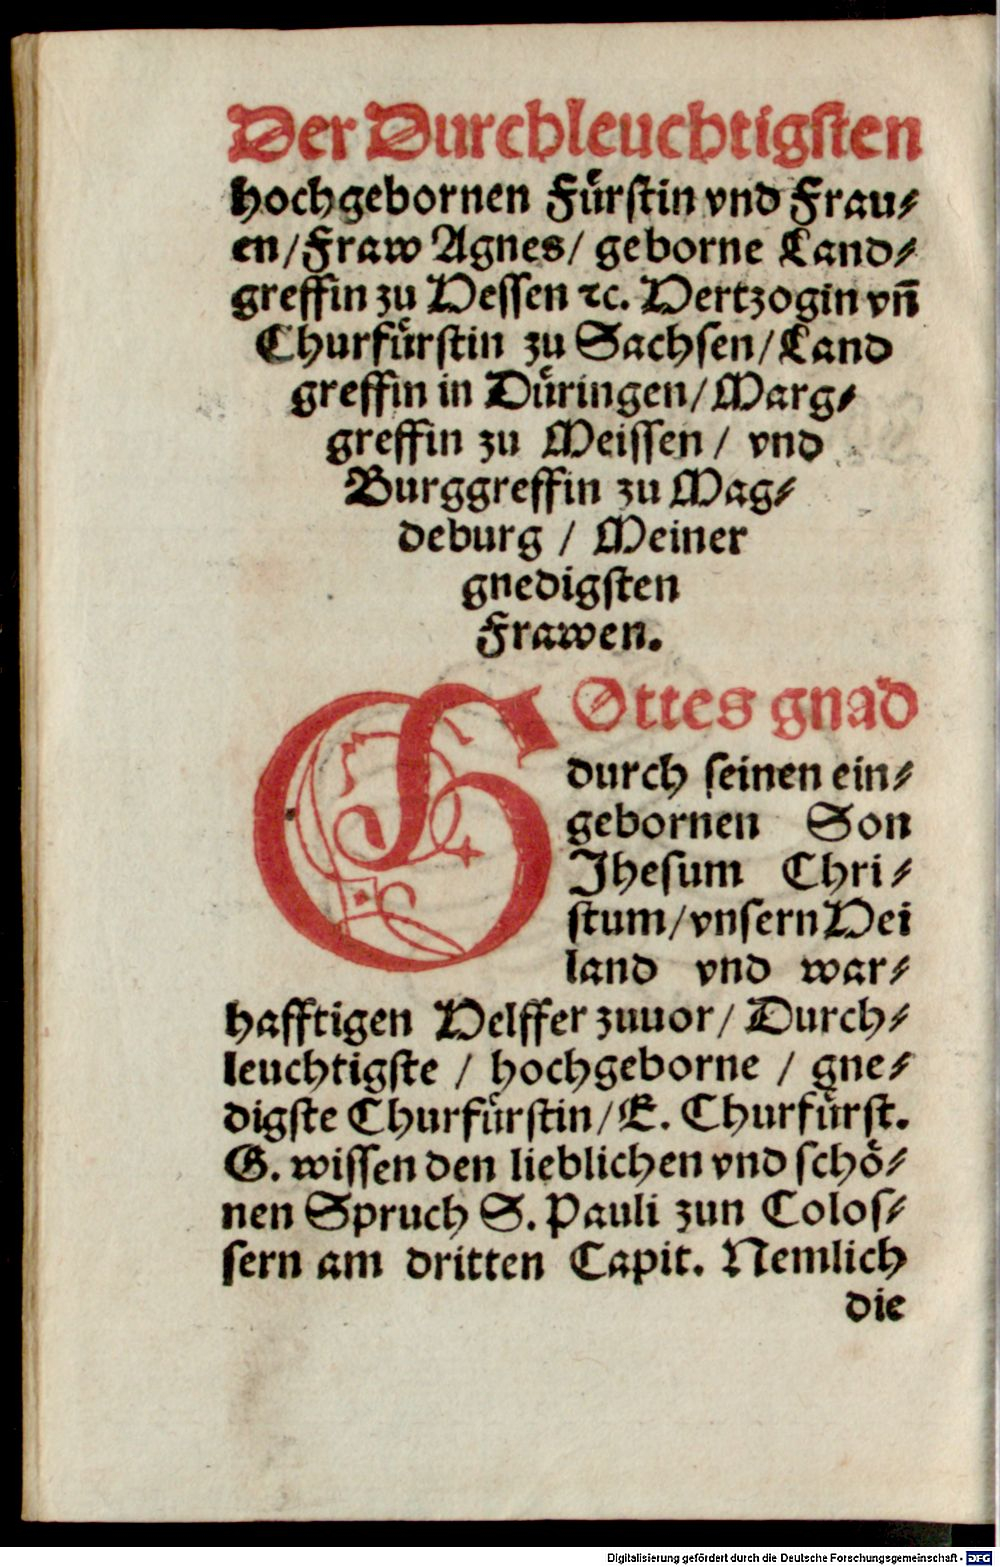 Der Durchleuchtigſten
hochgebornen Fuͤrſtin vnd Frau⸗
en/Fraw Agnes/ geborne Land⸗
greffin zu Heſſen ꝛc. Hertzogin vn̄
Churfuͤrſtin zu Sachſen/Land
greffin in Duͤringen/Marg⸗
greffin zu Meiſſen / vnd
Burggreffin zu Mag⸗
deburg / Meiner
gnedigſten
Frawen.
GOttes gnad
durch ſeinen ein⸗
gebornen Son
Jheſum Chri⸗
ſtum/vnſern Hei
land vnd war⸗
hafftigen Helffer zuuor/ Durch⸗
leuchtigſte / hochgeborne / gne⸗
digſte Churfuͤrſtin/E. Churfuͤrſt.
G. wiſſen den lieblichen vnd ſchoͤ⸗
nen Spruch S. Pauli zun Coloſ⸗
ſern am dritten Capit. Nemlich
die
Digitalisierung gefördert durch die Deutsche Forschungsgemeinschaft - DFG